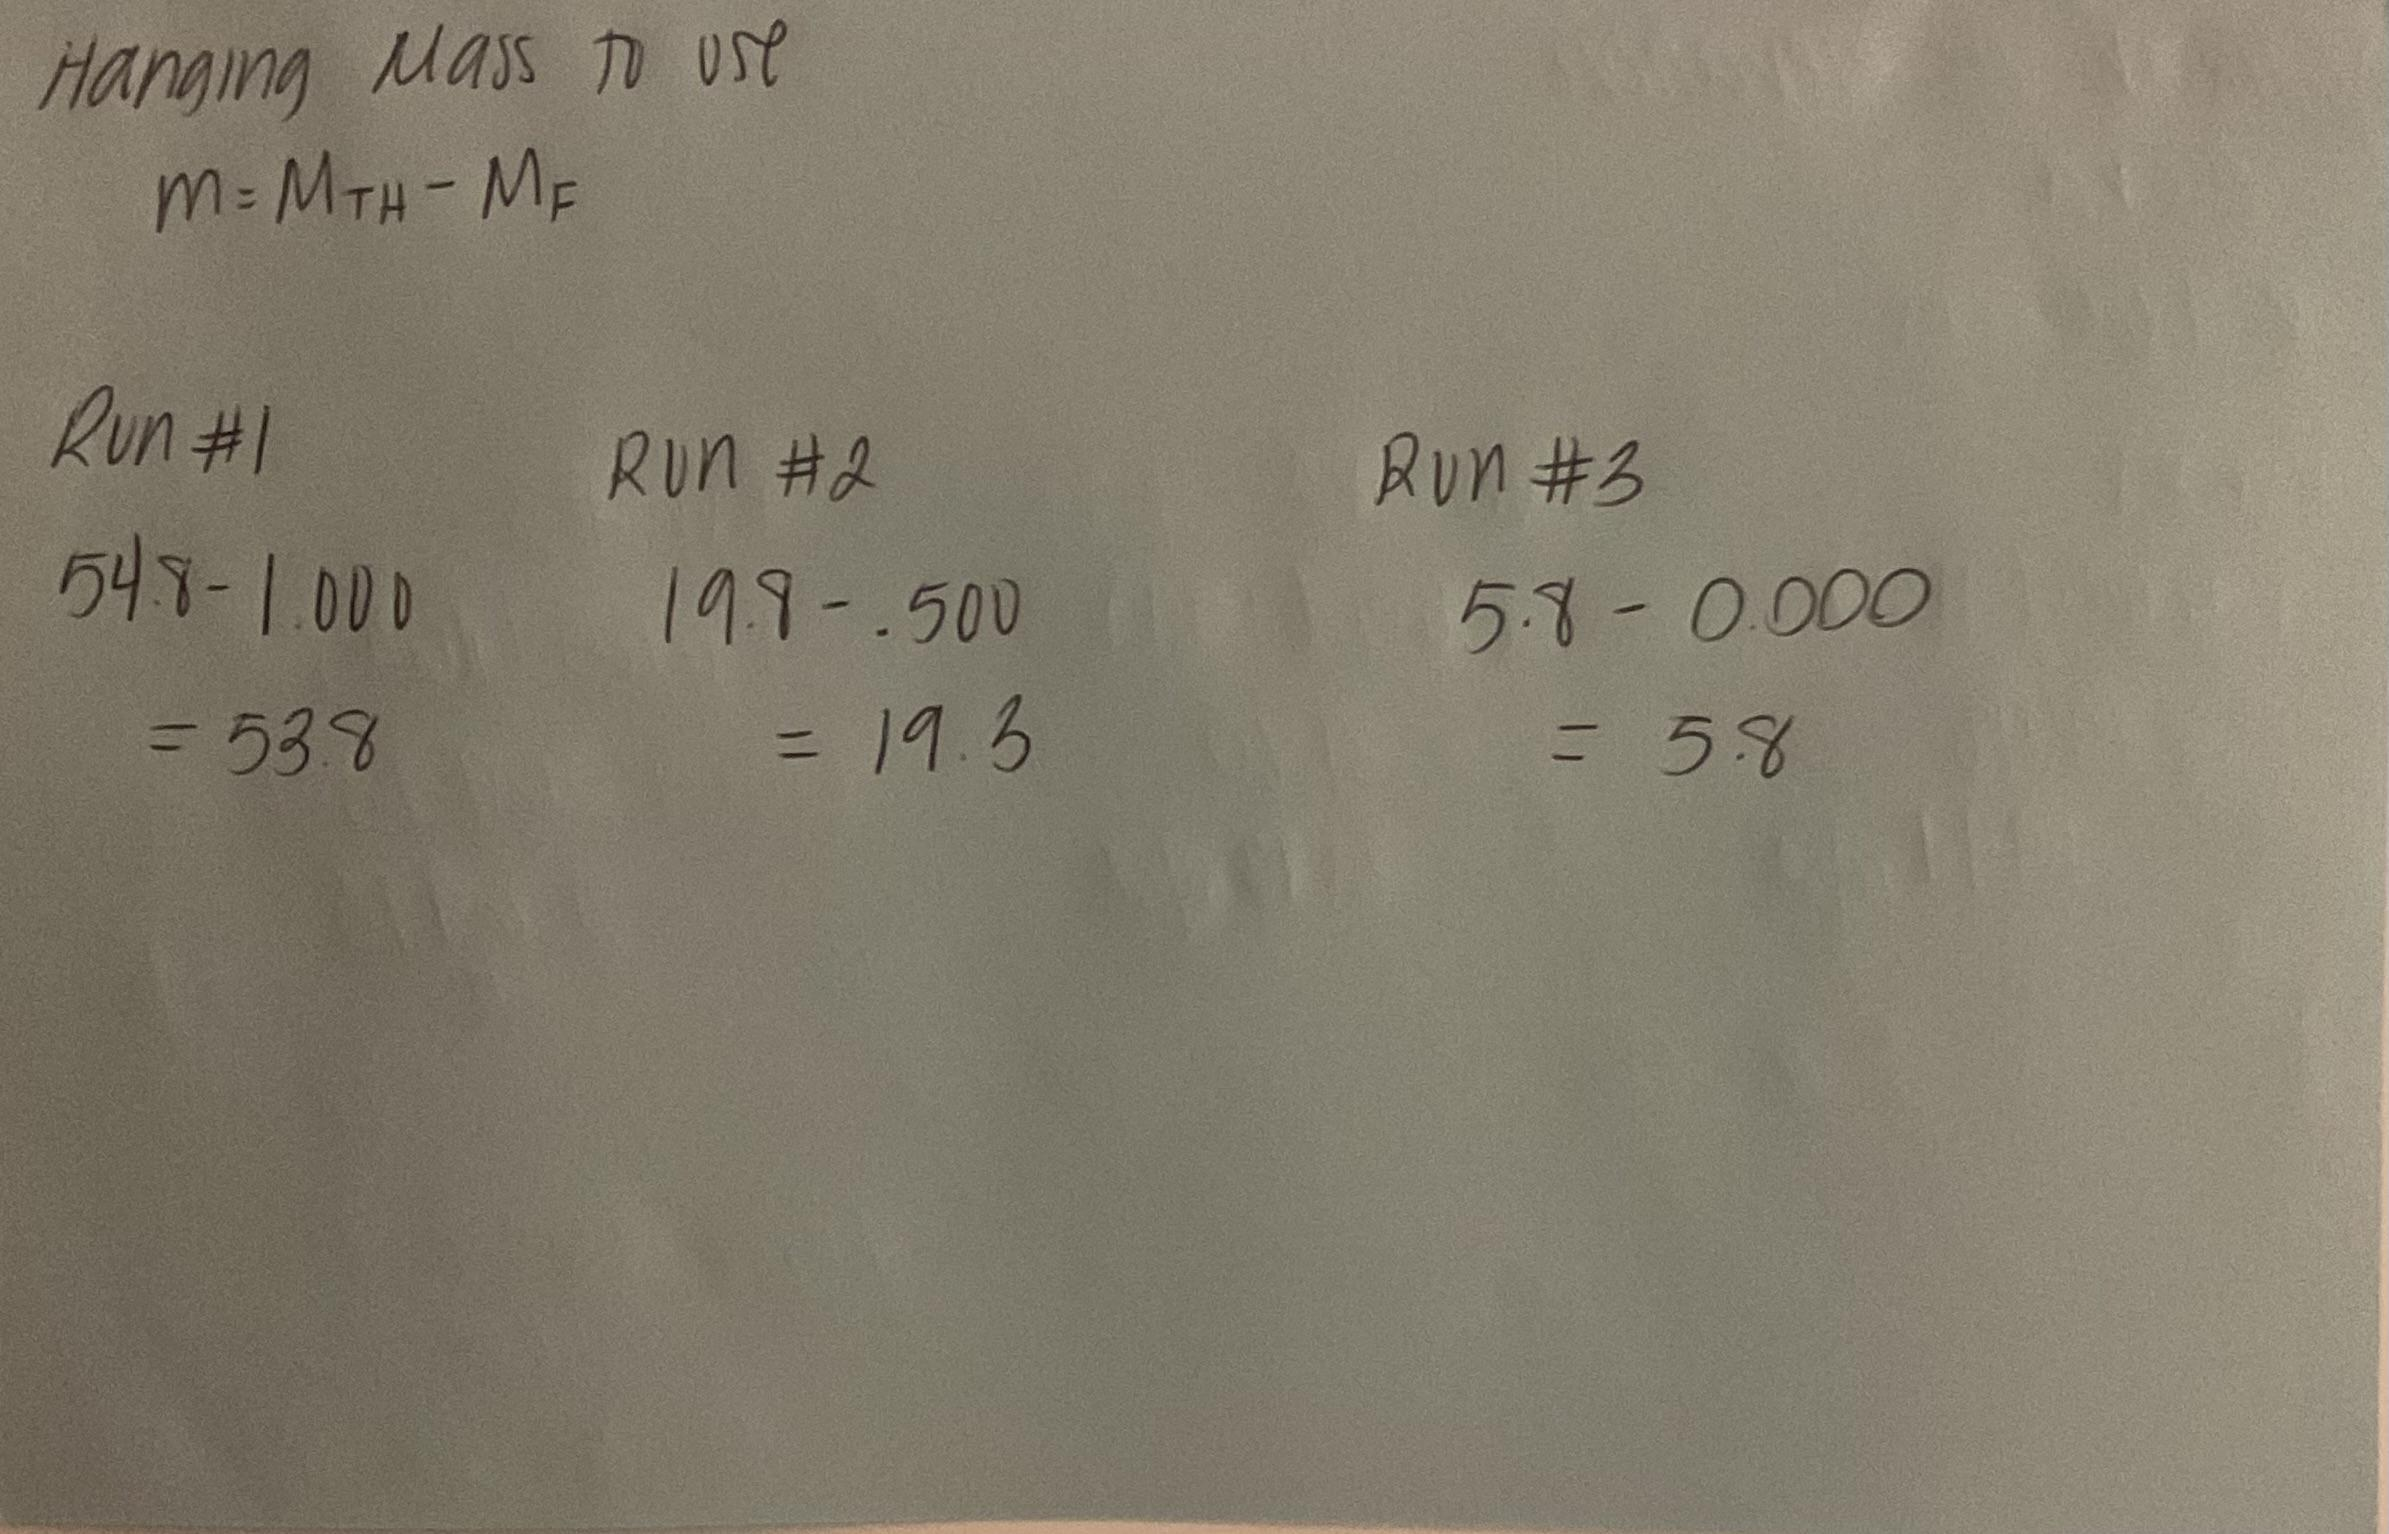 Hanging Mass to use
m = M_TH - M_F
Run #1
54.8 - 1.000
= 53.8
Run #2
19.8 - .500
= 19.3
Run #3
5.8 - 0.000
= 5.8